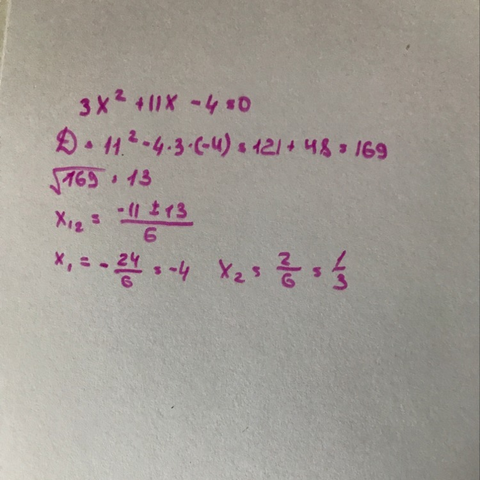 3x² + 11x - 4 = 0
D = 11² - 4·3·(-4) = 121 + 48 = 169
√169 = 13
x₁₂ = (-11 ± 13)/6
x₁ = -24/6 = -4   x₂ = 2/6 = 1/3